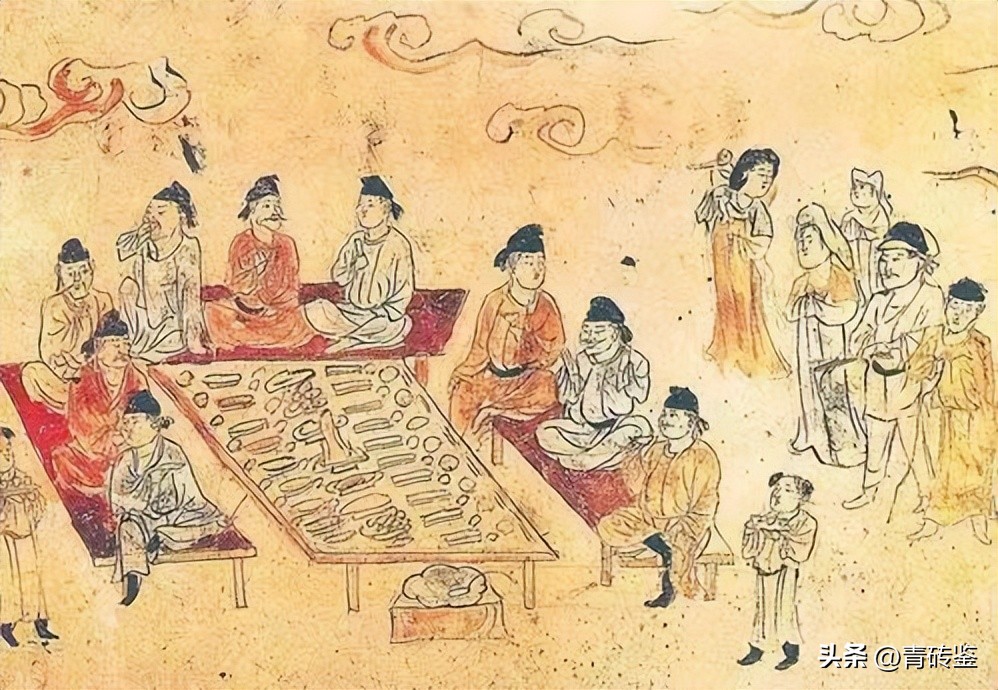 头条 @青砖鉴